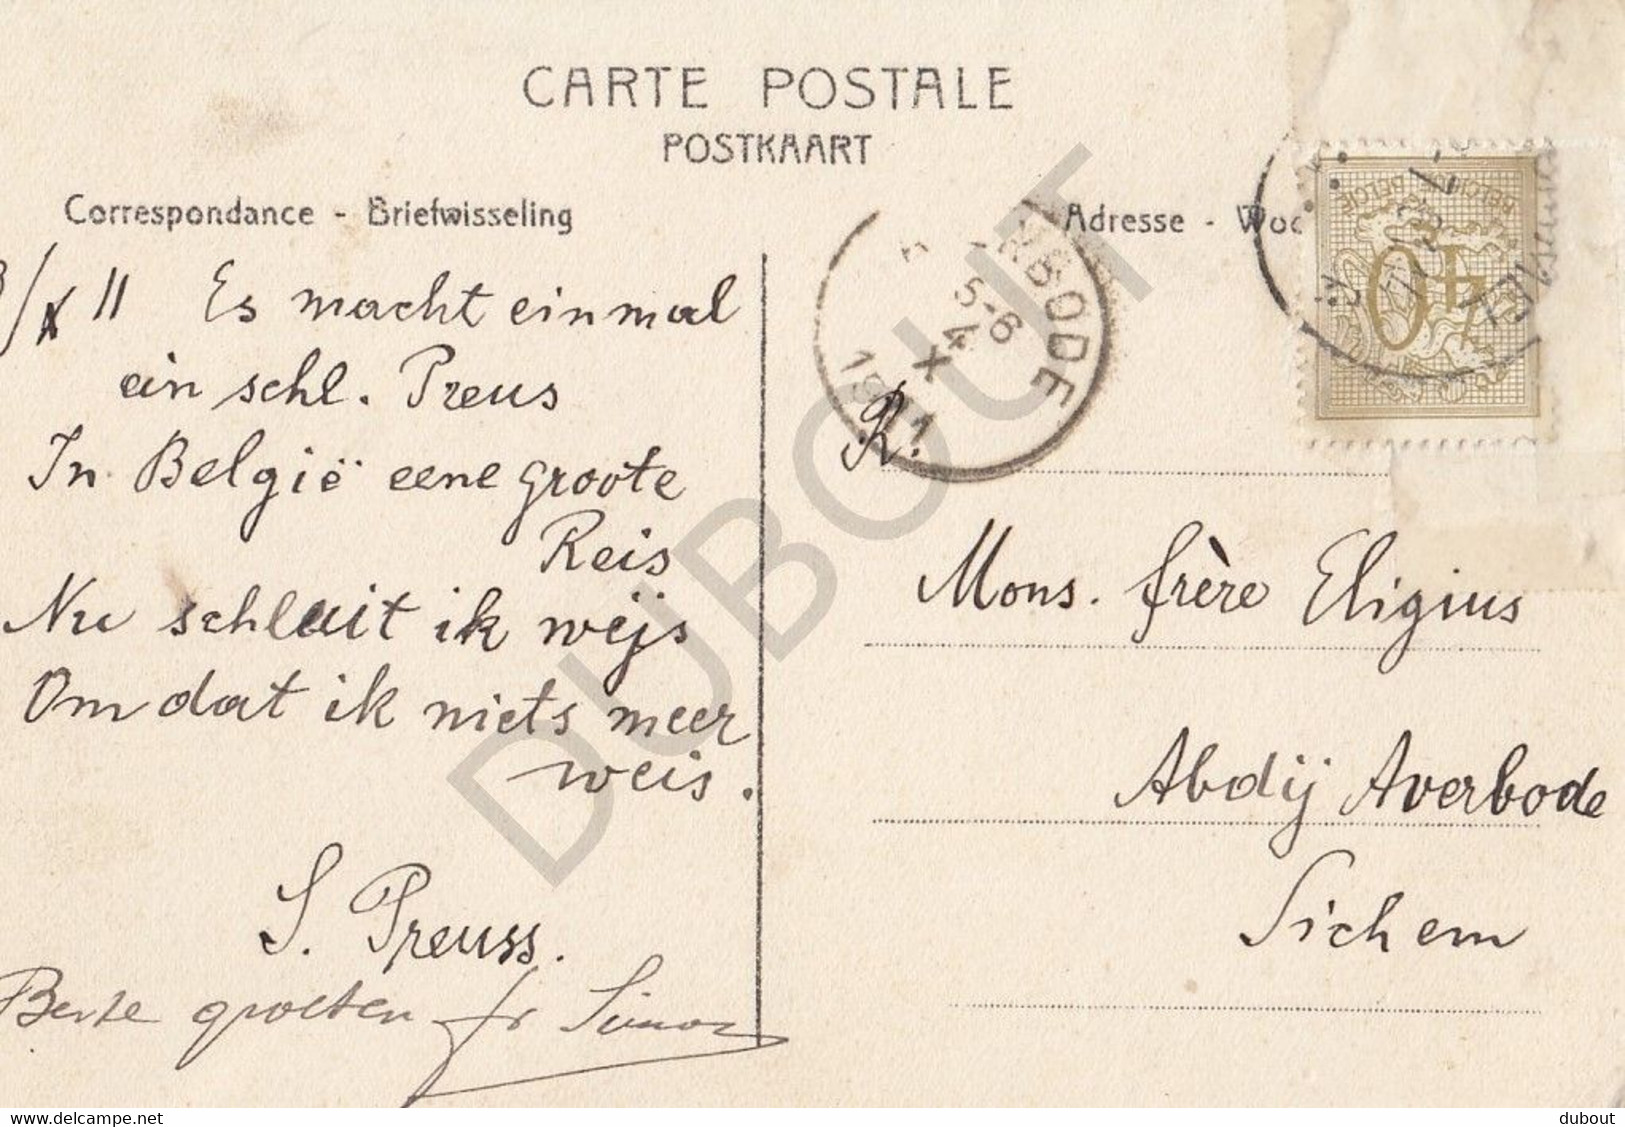 CARTE POSTALE
POSTKAART
Correspondance - Briefwisseling
Adresse - Woo
/X 11 Es macht einmal
ein schl. Preus
In België eene groote
Reis
Nu schluit ik weijs
Om dat ik niets meer
weis.
S. Preuss.
Beste groeten fr Simon
RBODE
5-6
4
X
1911
BELGIE BELGIQUE
40
R.
Mons. frère Eligius
Abdij Averbode
Sichem
DUBOUT
dubout